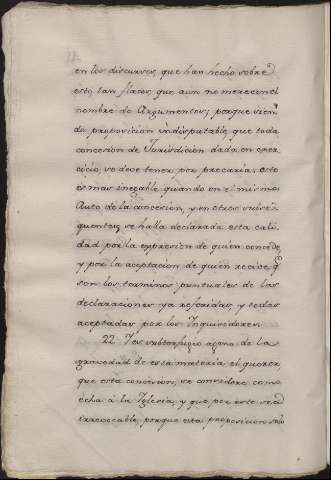 en los discursos, que han hecho sobre
esto tan flacos, que aun no merecen el
nombre de Argumentos; porque sien
do proposicion indisputable que toda
concesion de Jurisdicion dada en exer
cicio, se deve tener por precaria; esto
es mas inegable quando en el mismo
Auto de la concesion, y en otros subse
quentes se halla declarada esta cali
dad por la expresion de quien concede,
y por la aceptacion de quien recive, q.
son los terminos puntuales de las
declaraciones ya referidas, y todas
aceptadas por los Inquisidores.
22. Y es subterfugio ageno de la
gravedad de esta materia el querer
que esta concesion, se considere como
echa à la Iglesia, y que por esto sea
irrevocable, porque esta proposicion